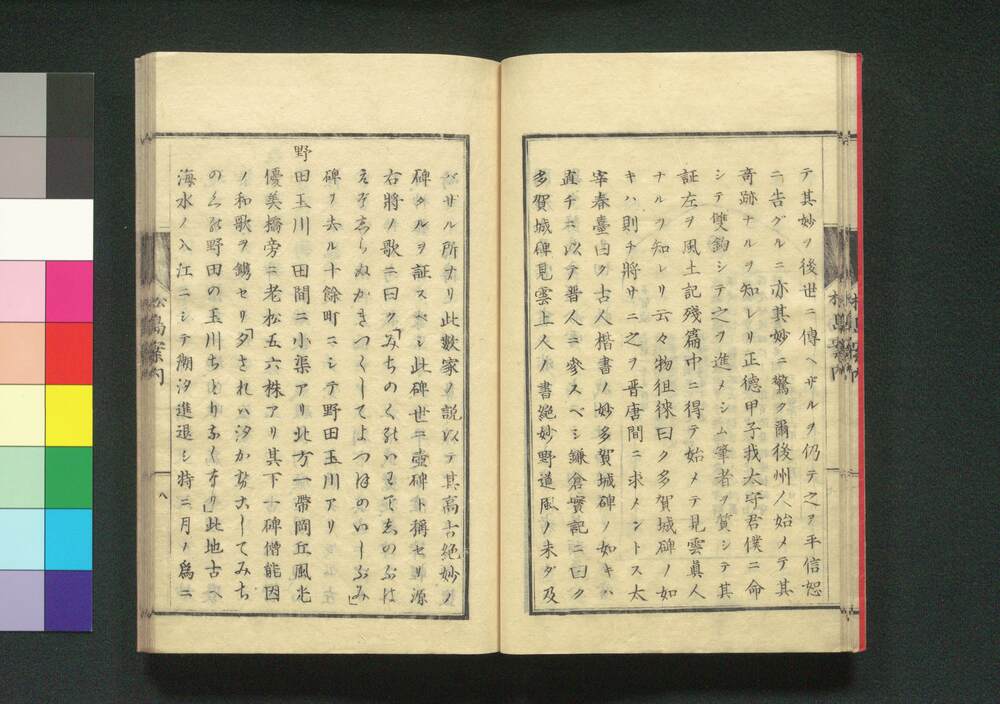 テ其妙ノ後世ニ傳ヘザルヲ仍テ之ヲ平信恕
ニ告グルニ亦其妙ニ驚ク爾後州人始メテ其
奇跡ナルヲ知レリ正德甲子我太守君僕ニ命
シテ雙鈎シテ之ヲ進メシム筆者ヲ質シテ其
証左ヲ風土記殘篇中ニ得テ始メテ見雲眞人
ナルヲ知レリ云々物徂徠曰ク多賀城碑ノ如
キハ則チ將サニ之ヲ晋唐間ニ求メントス太
宰春臺曰ク古人楷書ノ妙多賀城碑ノ如キハ
直チニ以テ晋人ニ參スベシ鎌倉實記ニ曰ク
多賀城碑見雲上人ノ書絶妙野道風ノ未ダ及
松島案内
バザル所ナリ此數家ノ説以テ其高古絶妙ノ
碑タルヲ証スベシ此碑世ニ壺碑ト稱セリ源
右將ノ歌ニ曰ク「みちのくのいはでしのぶは
えぞしらぬかきつくしてよつほのいしぶみ」
碑ヲ去ル十餘町ニシテ野田玉川アリ
野田玉川 田間ニ小渠アリ北方一帶岡丘風光
優美橋旁ニ老松五六株アリ其下一碑僧能因
ノ和歌ヲ鐫セリ「夕されハ汐かぜこしてみち
のくの野田の玉川ちとりなくなり」此地古ヘ
海水ノ入江ニシテ潮汐進退シ特ニ月ノ爲ニ
松島案内
八